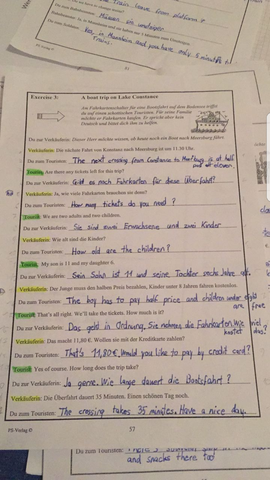 Train leave from platform ?
Müssen wir umsteigen
Yes, in Mannheim and you have only 5 minutes
Train.
37
Exercise 3: A boat trip on Lake Constance
Am Fahrkartenschalter für eine Bootsfahrt auf dem Bodensee triffst
du auf einen schottischen Touristen. Für seine Familie
möchte er Fahrkarten kaufen. Er spricht aber kein
Deutsch und bittet dich ihm zu helfen.
Du zur Verkäuferin: Dieser Herr möchte wissen, ob heute noch ein Boot nach Meersburg fährt.
Verkäuferin: Die nächste Fähre von Konstanz nach Meersburg ist um 11.30 Uhr.
Du zum Touristen: The next crossing from Constance to Meersburg is at half
past eleven.
Tourist: Are there any tickets left for this trip?
Du zur Verkäuferin: Gibt es noch Fahrkarten für diese Überfahrt?
Verkäuferin: Ja, wie viele Fahrkarten brauchen sie denn?
Du zum Touristen: How many tickets do you need ?
Tourist: We are two adults and two children.
Du zur Verkäuferin: Sie sind zwei Erwachsene und zwei Kinder
Verkäuferin: Wie alt sind die Kinder?
Du zum Touristen: How old are the children?
Tourist: My son is 11 and my daughter 6.
Du zur Verkäuferin: Sein Sohn ist 11 und seine Tochter sechs Jahre alt.
Verkäuferin: Der Junge muss den halben Preis bezahlen, Kinder unter 8 Jahren fahren kostenlos.
Du zum Touristen: The boy has to pay half price and children under eight
are free
Tourist: That's all right. We'll take the tickets. How much is it?
Du zur Verkäuferin: Das geht in Ordnung, Sie nehmen die Fahrkarten. Wie viel
kostet das?
Verkäuferin: Das macht 11,80 €. Wollen sie mit der Kreditkarte zahlen?
Du zum Touristen: That's 11,80€. Would you like to pay by credit card?
Tourist: Yes of course. How long does the trip take?
Du zur Verkäuferin: Ja gerne. Wie lange dauert die Bootsfahrt ?
Verkäuferin: Die Überfahrt dauert 35 Minuten. Einen schönen Tag noch.
Du zum Touristen: The crossing takes 35 minutes. Have a nice day.
PS-Verlag ©
37
and snacks there too